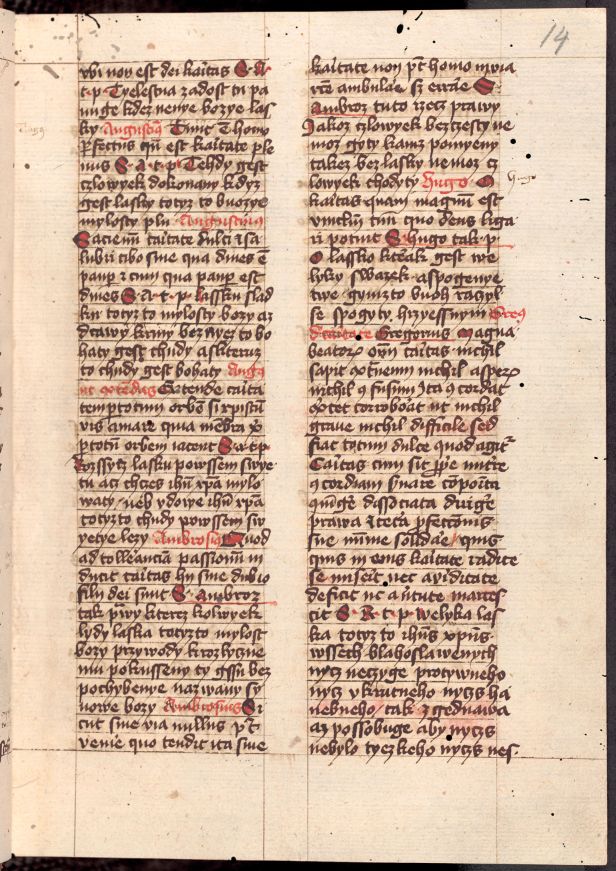 14
vbi non est dei karitas S. A.
t. p. Tyelestna zadost tu pa
nuge kdez nenye bozye las
ky Augustin9 Tunc e homo
pfectus qn est karitate ple
nus S. A. t. p. Tehdy gest
czlowyek dokonany kdyz
gest lasky totyz to buozye
mylosty pln Augustinus
Saciemur caritate dulci z sa
lubri cibo sine qua diues e
paup z cum qua paup est
diues S. A. t. p. lassku slad
ku totyz to mylosty bozy az
drawy krmy bez nyez to bo
haty gest chudy a s kteruz
to chudy gest bohaty Aug9
ut ostendas Extende carita
tem p totum orbem si xpistu
vis amare quia membra x
p totu orbem iacent S. A. t. p.
Rozssyrz lasku powssem swye
tu ac chczes ihu xpa mylo
waty neb vdowe ihu xpa
totyz to chudy powssem sw
yetye lezy Ambrosi9 Quod
ad tolleancia passionum in
ducit caritas hii sine dubio
filii dei sunt S. Ambroz
tak prwy kterez kolwyek
lydy laska totyz to mylost
bozy przywody k rozlyczne
mu pokusseny ty gssu bez
pochybenye nazwany sy
nowe bozy Ambrosius Si
cut sine via nullus pt
venire quo tendit ita sine
karitate non pt homo in via
rte ambulare s; errare S.
Ambroz tuto rzecz prawy
Jakoz czlowyek bez czesty ne
moz gyty kamz pomyeny
takez bez lasky nemoz cz
lowyek chodyty Hugo O
Hugo
karitas quam magnum est
vinclum tuum quo deus liga
ri potuit S. Hugo tak p.
O lassko kterak gest we
lyky swazek a spogenye
twe gymzto buoh raczyl
se spogyty hrzyessnym Greg9
d caritate Gregorius Magna
beatorz oim caritas nichil
sapit extneum nichil asperz
nichil 9fusum Ita 9cordat
Octet corroborat ut nichil
graue nichil difficile sed
fiat totum dulce quod agitr
Caritas cum sit ppe nutre
9cordiam seruare composita
9iungere dissociata dirigere
prawa z cetera pfectionis
sue munime solidare quis
quis in eius karitate radice
se miscuit nec ayiditate
deficit nec a uirtute marces
cit S. R. t. p. Welyka las
ka totyz to ihus xpus
wssech blahoslawenych
nycz neczyge protywneho
nycz vkrutneho nyczs ha
nebneho tak z gednawa
a z possobuge aby nyczs
nebylo tyezkeho nyczs nes